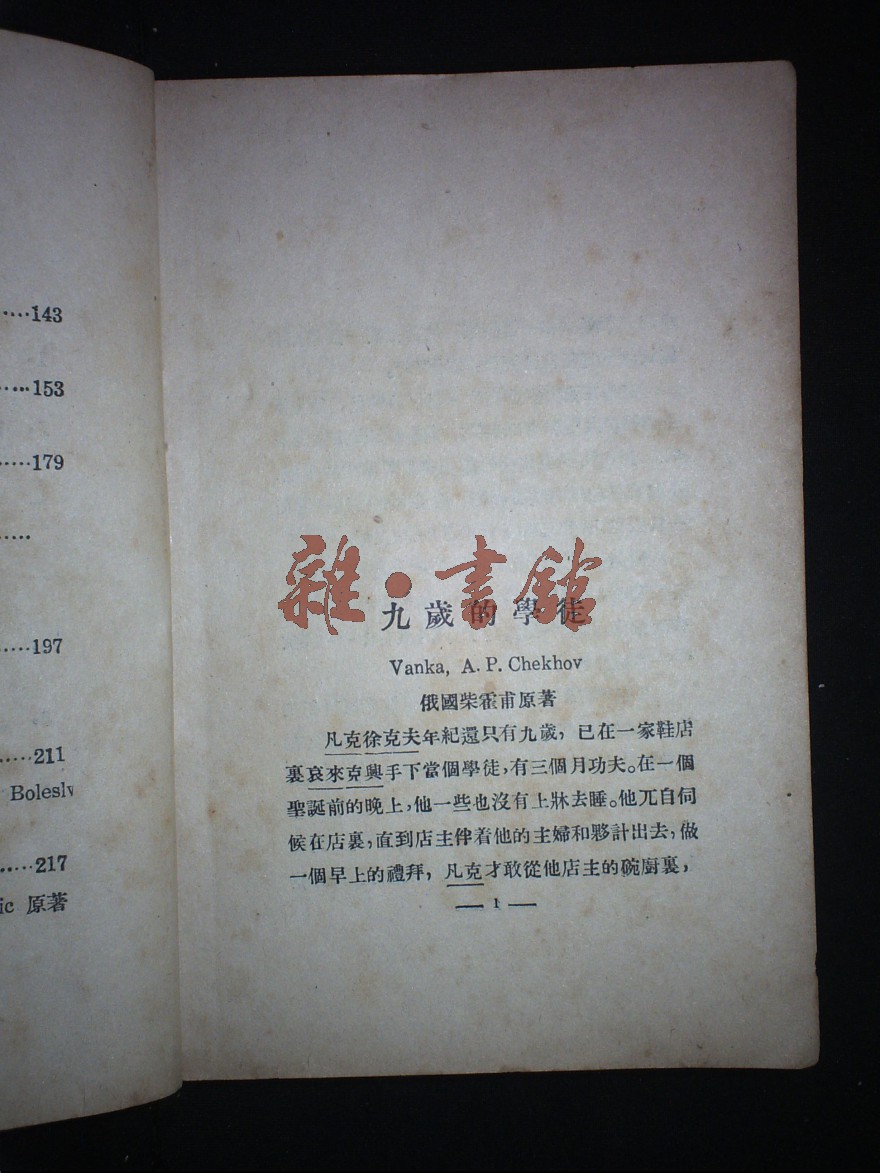 ·····143
·····153
·····179
·····
·····197
·····211
Bolesl
·····217
ic 原著
雜·書館
九歲的學徒
Vanka, A. P. Chekhov
俄國柴霍甫原著
凡克徐克夫年紀還只有九歲，已在一家鞋店
裏哀來克興手下當個學徒，有三個月功夫。在一個
聖誕前的晚上，他一些也沒有上牀去睡。他兀自伺
候在店裏，直到店主伴着他的主婦和夥計出去，做
一個早上的禮拜，凡克才敢從他店主的碗廚裏，
— 1 —